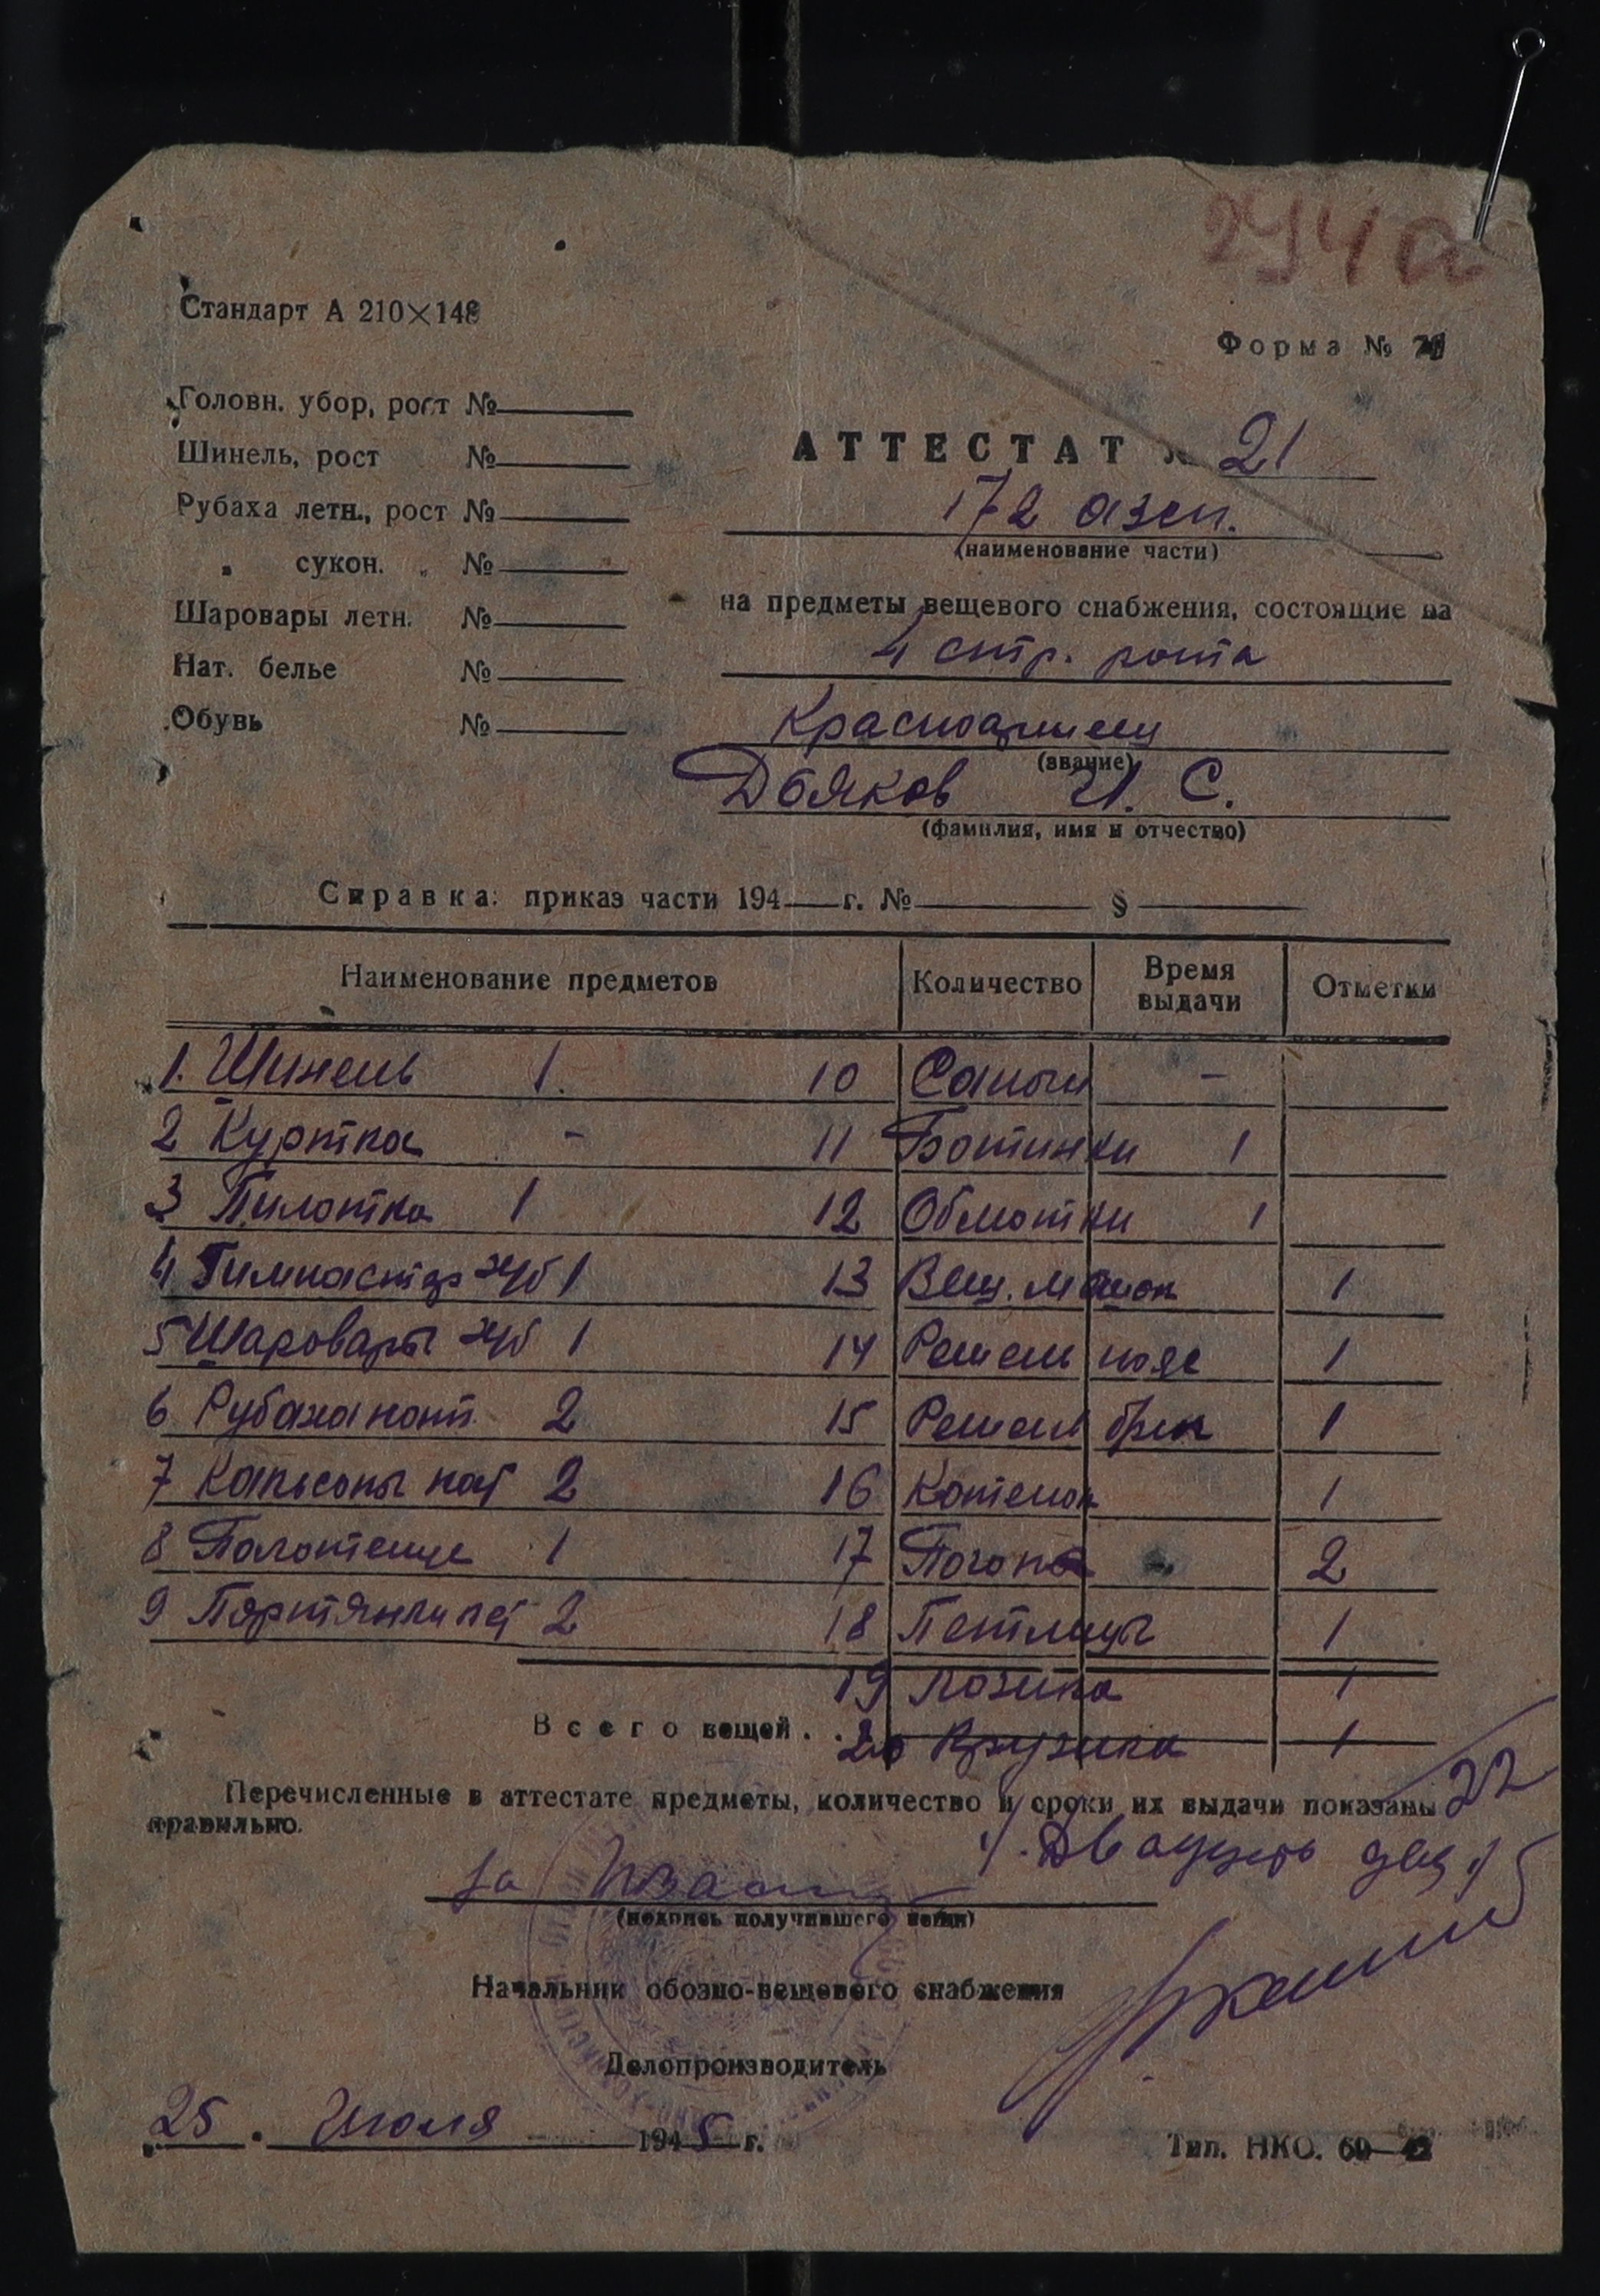 294а
Стандарт А 210×148
Форма №
Головн. убор, рост №
Шинель, рост №
Рубаха летн., рост №
„ сукон. „ №
Шаровары летн. №
Нат. белье №
Обувь №
АТТЕСТАТ № 21
172 азсп.
(наименование части)
на предметы вещевого снабжения, состоящие на
4 стр. рота
Красноармеец
(звание)
Дьяков И. С.
(фамилия, имя и отчество)
Справка: приказ части 194 г. № §
Наименование предметов Количество Время выдачи Отметки
1. Шинель 1. 10 Сапоги -
2 Куртка - 11 Ботинки 1
3 Пилотка 1 12 Обмотки 1
4 Гимнастер х/б 1 13 Вещ. мешок 1
5 Шаровары х/б 1 14 Ремень пояс 1
6 Рубаха нат. 2 15 Ремень брюк 1
7 Кальсоны нат 2 16 Котелок 1
8 Полотенце 1 17 Погоны 2
9 Портянки лет 2 18 Петлицы 1
19 Ложка 1
Всего вещей . . 20 Кружка 1
Перечисленные в аттестате предметы, количество и сроки их выдачи показаны
правильно.
22
Двадцать два
за
(подпись получившего вещи)
Начальник обозно-вещевого снабжения
Делопроизводитель
25 . Июля 1945 г.
Тип. НКО. 60—42